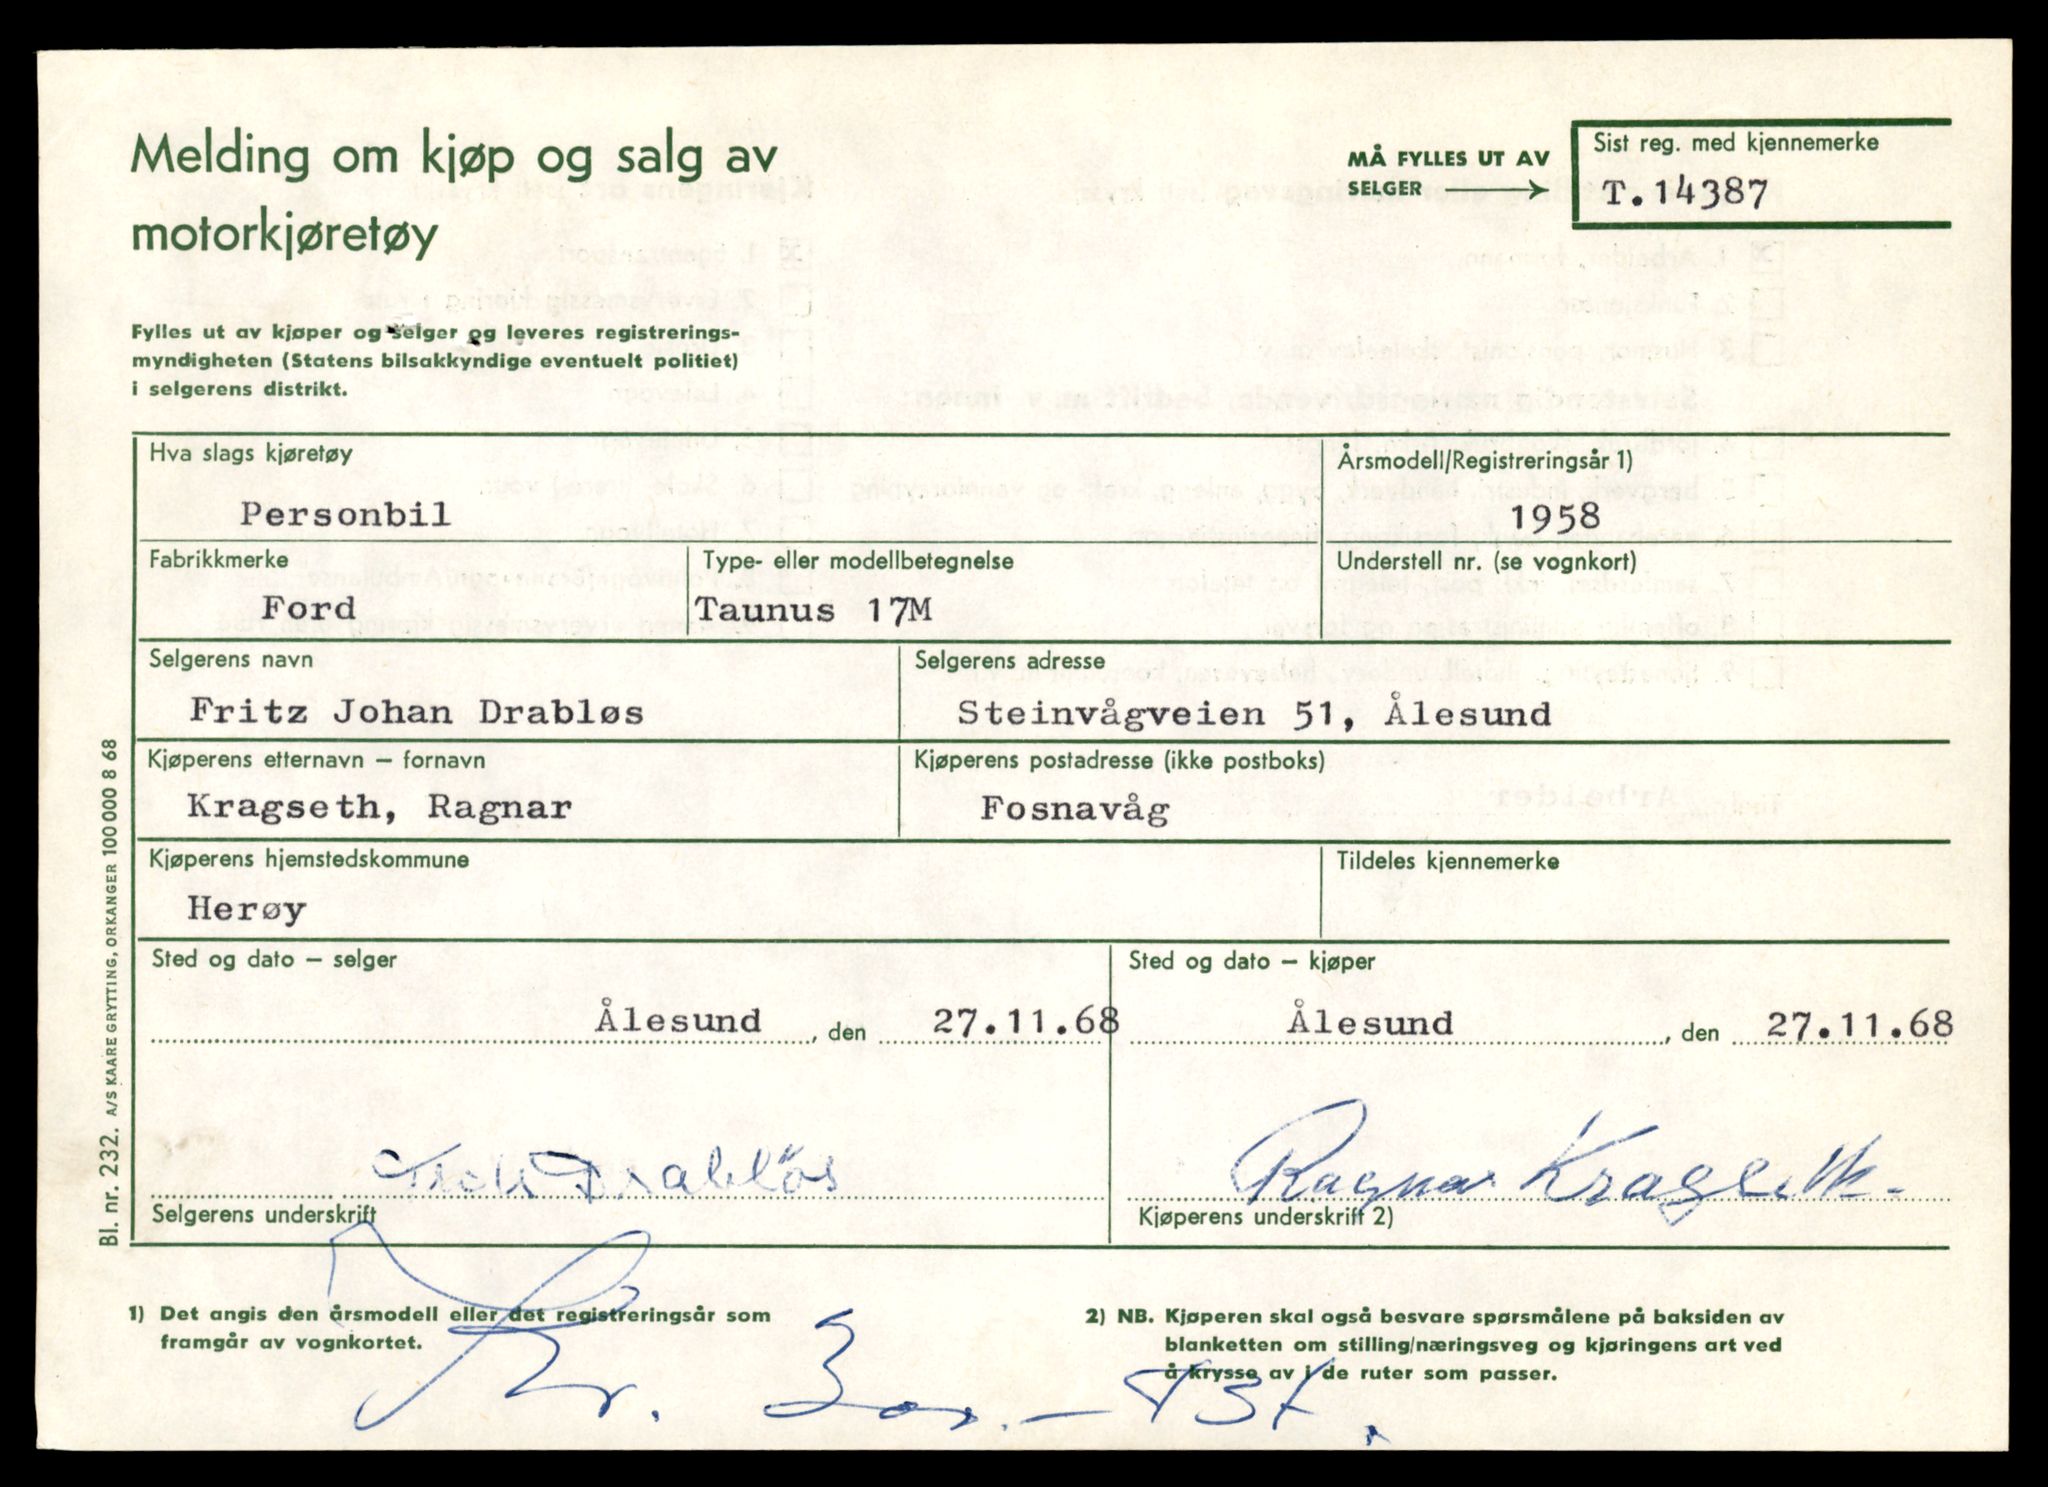 Melding om kjøp og salg av
motorkjøretøy
MÅ FYLLES UT AV
SELGER
Sist reg. med kjennemerke
T.14387
Fylles ut av kjøper og selger og leveres registrerings-
myndigheten (Statens bilsakkyndige eventuelt politiet)
i selgerens distrikt.
Hva slags kjøretøy
Personbil
Årsmodell/Registreringsår 1)
1958
Fabrikkmerke
Ford
Type- eller modellbetegnelse
Taunus 17M
Understell nr. (se vognkort)
Selgerens navn
Fritz Johan Drabløs
Selgerens adresse
Steinvågveien 51, Ålesund
Kjøperens etternavn – fornavn
Kragseth, Ragnar
Kjøperens postadresse (ikke postboks)
Fosnavåg
Kjøperens hjemstedskommune
Herøy
Tildeles kjennemerke
Sted og dato – selger
Ålesund, den 27.11.68
Sted og dato – kjøper
Ålesund, den 27.11.68
Drabløs
Selgerens underskrift
Ragnar Kragseth
Kjøperens underskrift 2)
1) Det angis den årsmodell eller det registreringsår som
framgår av vognkortet.
2) NB. Kjøperen skal også besvare spørsmålene på baksiden av
blanketten om stilling/næringsveg og kjøringens art ved
å krysse av i de ruter som passer.
Bl. nr. 232. A/S KAARE GRYTTING, ORKANGER 100 000 8 68